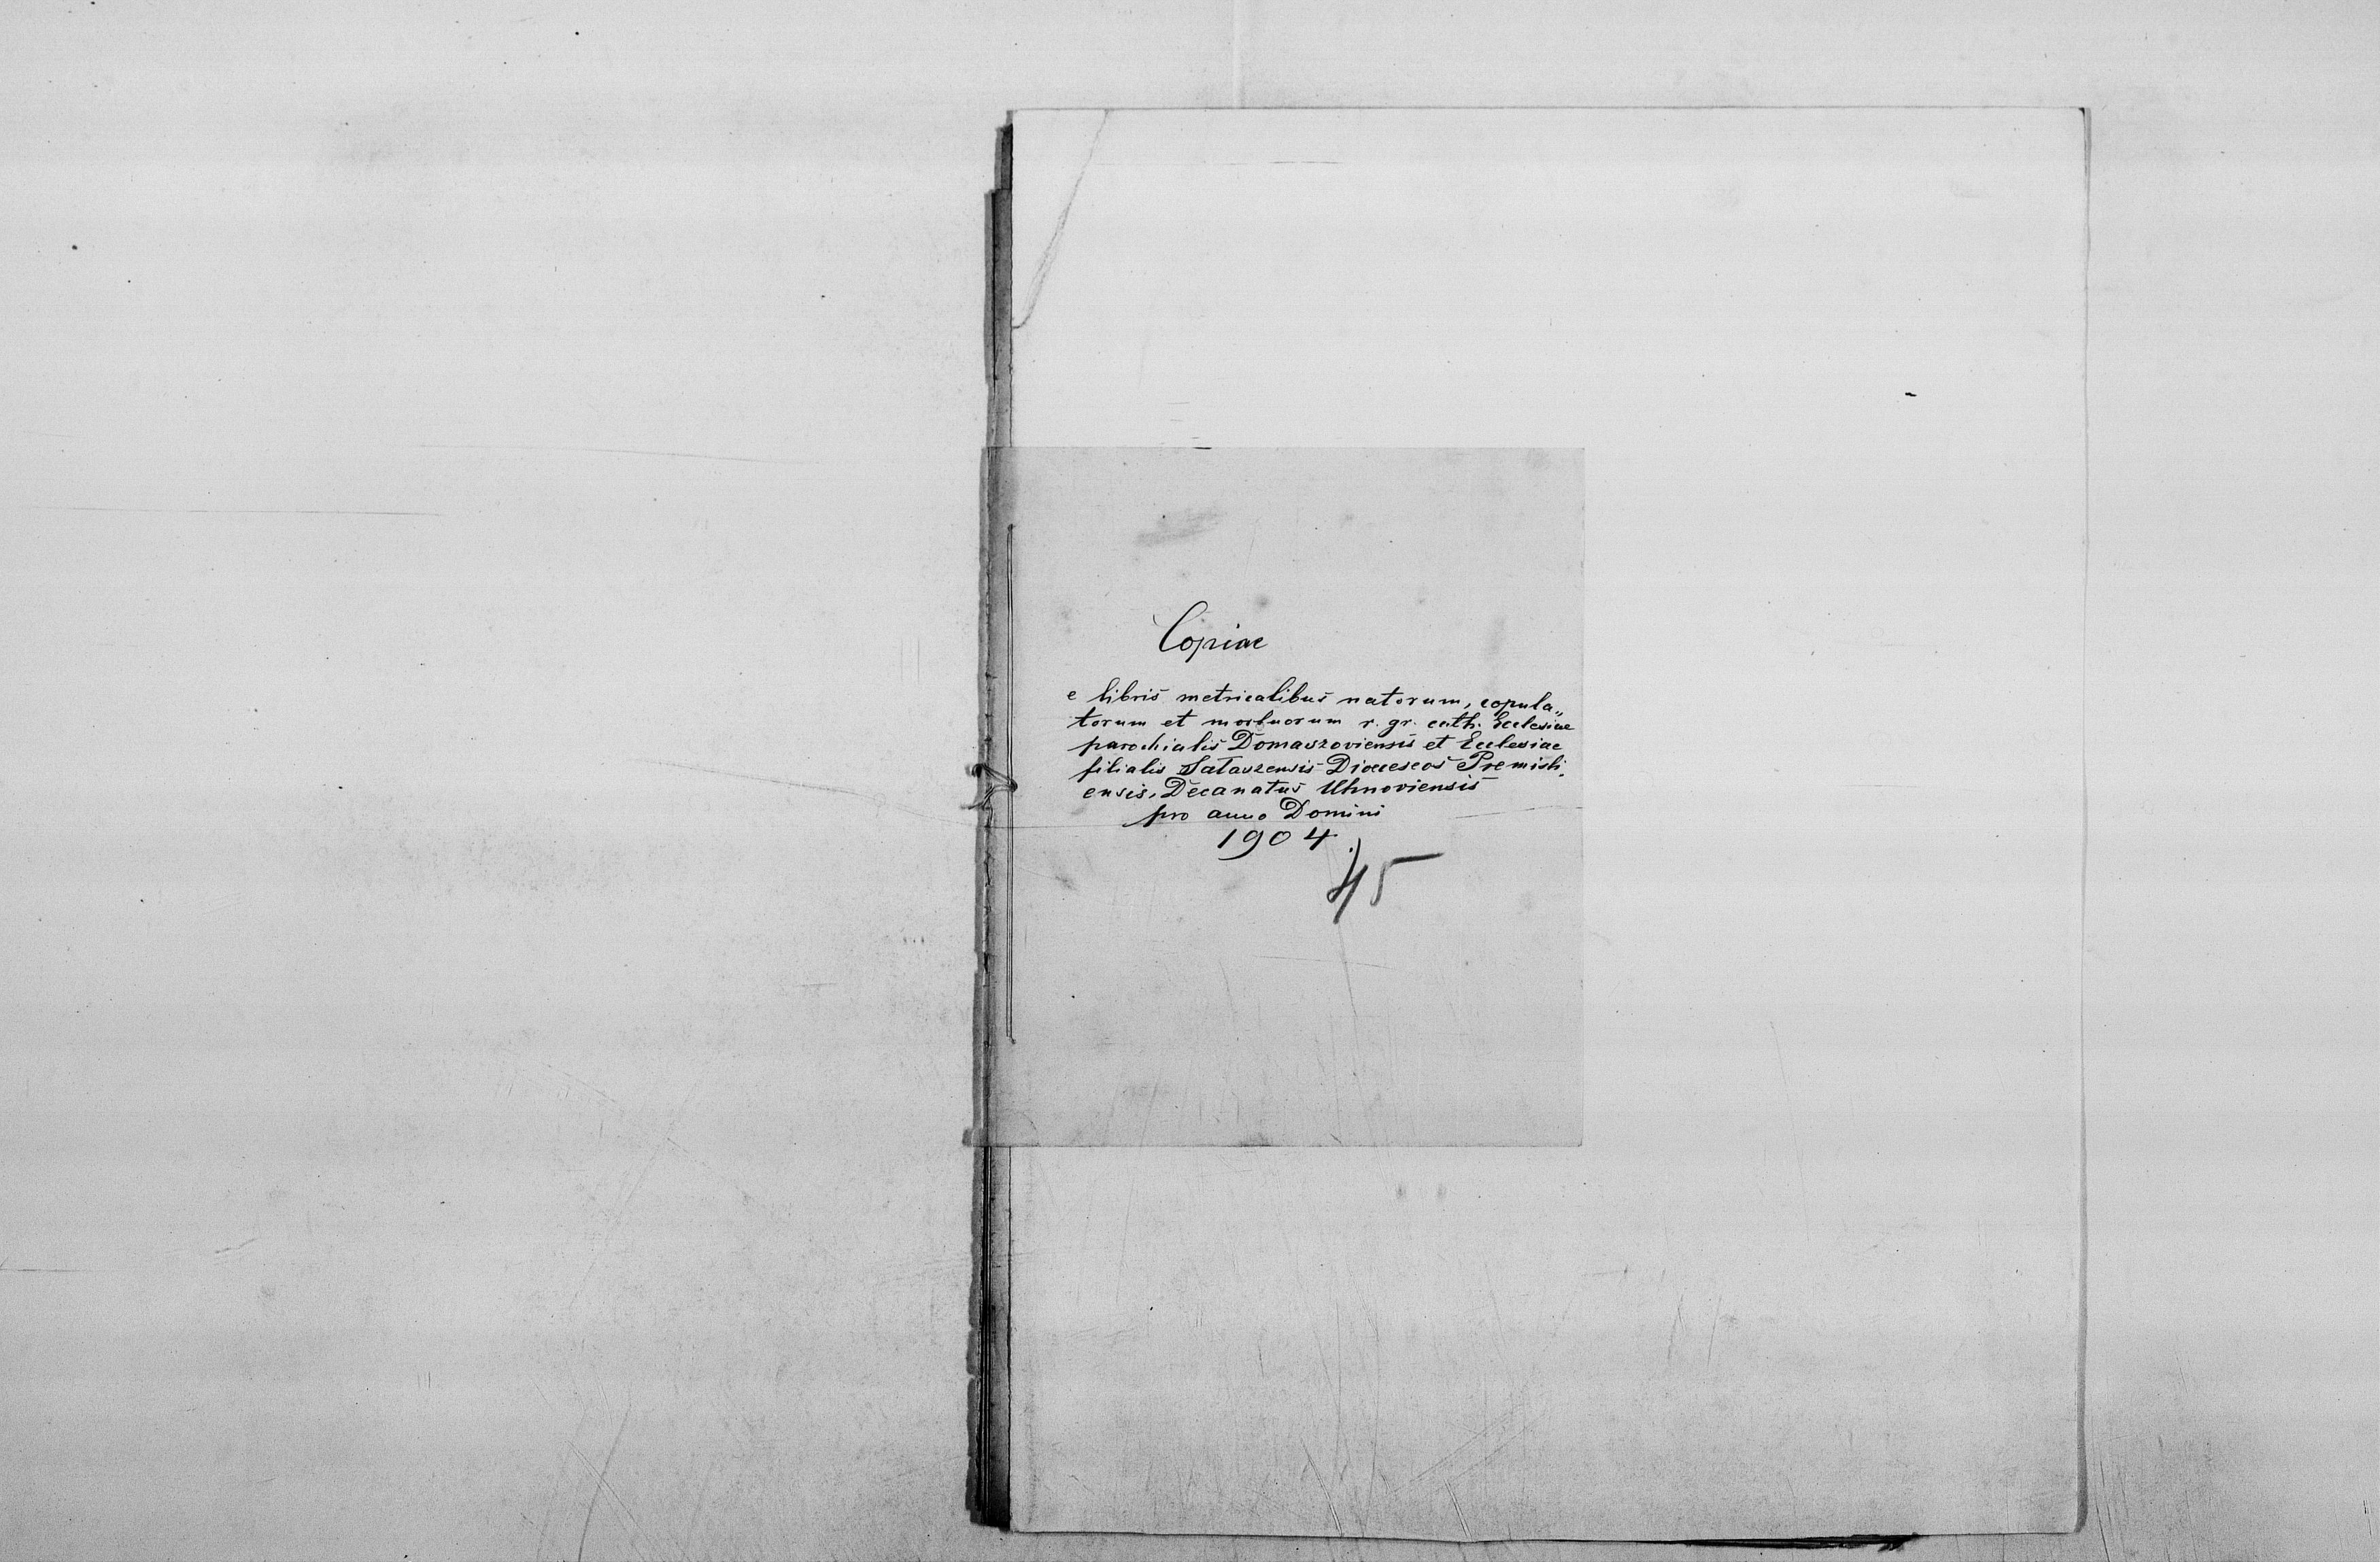 Copiae
e libris metricalibus natorum, copula„
torum et mortuorum r. gr. cath. Ecclesiae
parochialis Domaszoviensis et Ecclesiae
filialis Sałaszensis Dioeceseos Premisli„
ensis, Decanatus Uhnoviensis
pro anno Domini
1904.
45